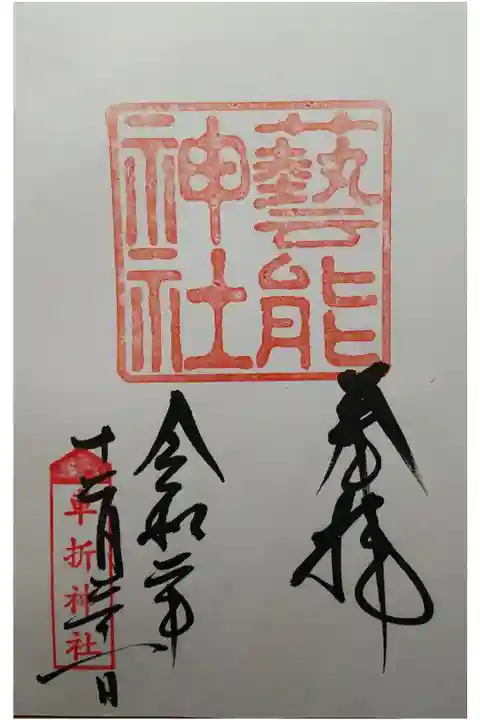 藝能
神社
奉拝
令和二年
十二月
日
車折神社